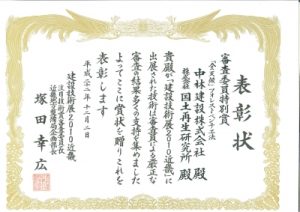 表彰状
審査委員特別賞
「全天候」フォレストベンチ工法
中林建設株式会社 殿
株式会社 国土再生研究所 殿
貴殿が「建設技術展2010近畿」に
出展された技術は本審査による厳正な
審査の結果多くの支持を集めました
よってここに賞状を贈りこれを
表彰します
平成二十二年十二月二日
建設技術展2010近畿
注目技術賞審査委員長
塚田幸広